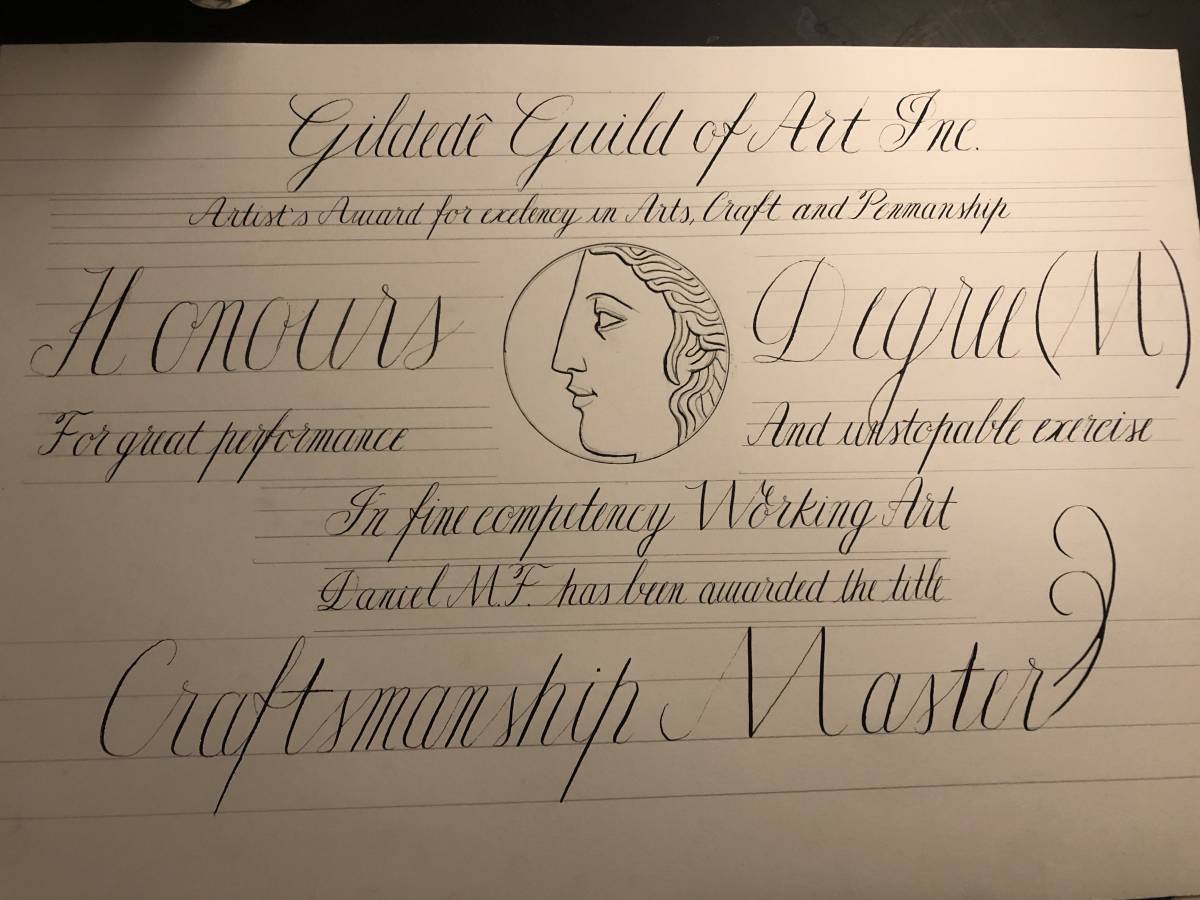 Gildedê Guild of Art Inc.
Artist's Award for exelency in Arts, Craft and Penmanship
Honours Degree (M)
For great performance And unstopable exercise
In fine competency Working Art
Daniel M.F. has been awarded the title
Craftsmanship Master